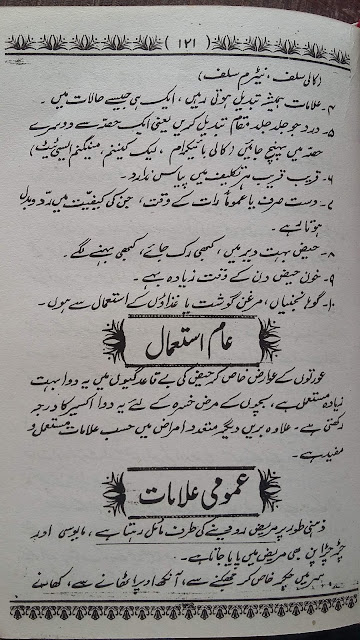 (۱۲۱)
(کالی سلف، نیٹرم سلف)
۴۔ علامات ہمیشہ تبدیل ہوتی رہیں، ایک ہی جیسے حالات میں۔
۵۔ درد جو جلد جلد مقام تبدیل کریں یعنی ایک حصہ سے دوسرے
حصہ میں پہنچ جائیں (کالی بائیکرام، لیک کینینم، مینگینم ایسی ٹیٹ)
۶۔ قریب قریب ہر تکلیف میں پیاس ندارد۔
۷۔ دست صرف یا عموماً رات کے وقت، جن کی کیفیت میں رد و بدل
ہوتا رہے۔
۸۔ حیض بہت دیر میں، کبھی رک جائے، کبھی بہنے لگے۔
۹۔ خون حیض دن کے وقت زیادہ بہے۔
۱۰۔ گوہانجنیاں، مرغن گوشت یا غذاؤں کے استعمال سے ہوں۔
عام استعمال
عورتوں کے عوارض خاص کر حیض کی بے قاعدگیوں میں یہ دوا بہت
زیادہ مستعمل ہے، بچوں کے مرض خسرہ کے لئے یہ دوا اکسیر کا درجہ
رکھتی ہے۔ علاوہ بریں دیگر متعدد امراض میں حسب علامات مستعمل و
مفید ہے۔
عمومی علامات
ذہنی طور پر مریض رو دینے کی طرف مائل رہتا ہے، مایوسی اور
چڑچڑاپن بھی مریض میں پایا جاتا ہے۔
سر میں چکر خاص کر جھکنے سے، آنکھ اوپر اٹھانے سے، کھانے